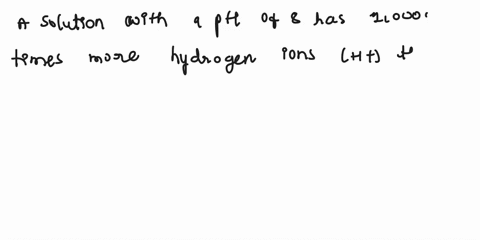 A solution with a pH of 8 has 1,000
times more hydrogen ions (H+) t